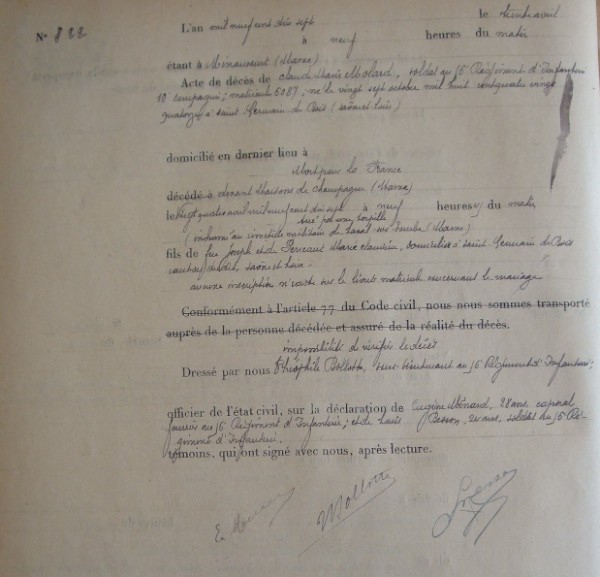 L'an mil neuf cent dix sept le trente avril
N° 822 à neuf heures du matin
étant à Minaucourt (Marne)
Acte de décès de Claude Marie Molard, soldat au 16e Régiment d'Infanterie
10e compagnie; matricule 6087; né le vingt sept octobre mil huit cent quatre vingt
quatorze à Saint Germain du Bois (Saône et Loire)
domicilié en dernier lieu à
Mort pour la France
décédé à devant Maisons de Champagne (Marne)
le vingt quatre avril mil neuf cent dix sept à neuf heures du matin
tué par une torpille
(inhumé au cimetière militaire de Laval sur Tourbe (Marne)
fils de feu Joseph et de Perceaut Marie Claudine, domiciliée à Saint Germain du Bois
canton dudit, Saône et Loire.
aucune inscription n'existe sur le livret matricule concernant le mariage
Conformément à l'article 77 du Code civil, nous nous sommes transporté
auprès de la personne décédée et assuré de la réalité du décès.
impossibilité de vérifier le décès
Dressé par nous Théophile Mollotte, sous lieutenant au 16e Régiment d'Infanterie;
officier de l'état civil, sur la déclaration de Eugène Ménard, 28 ans, caporal
fourrier au 16e Régiment d'Infanterie; et de Louis Besson, 20 ans, soldat du 16e Ré-
giment d'Infanterie.
témoins, qui ont signé avec nous, après lecture.
E. Mollotte